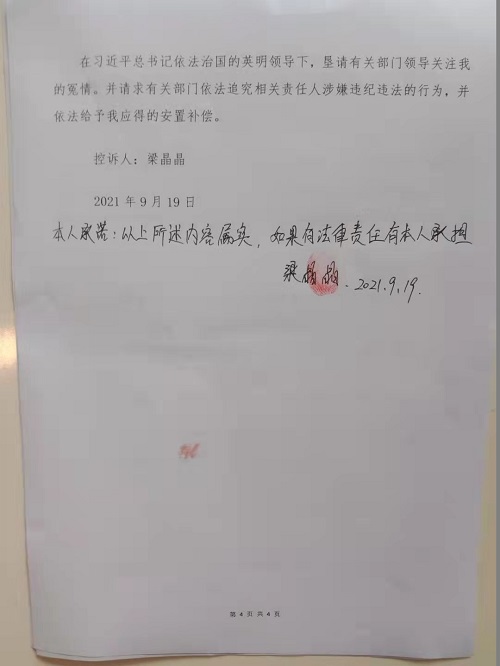 在习近平总书记依法治国的英明领导下，垦请有关部门领导关注我
的冤情。并请求有关部门依法追究相关责任人涉嫌违纪违法的行为，并
依法给予我应得的安置补偿。
控诉人：梁晶晶
2021 年 9 月 19 日
本人承诺：以上所述内容属实，如果有法律责任有本人承担
梁晶晶．2021.9.19.
第 4 页 共 6 页